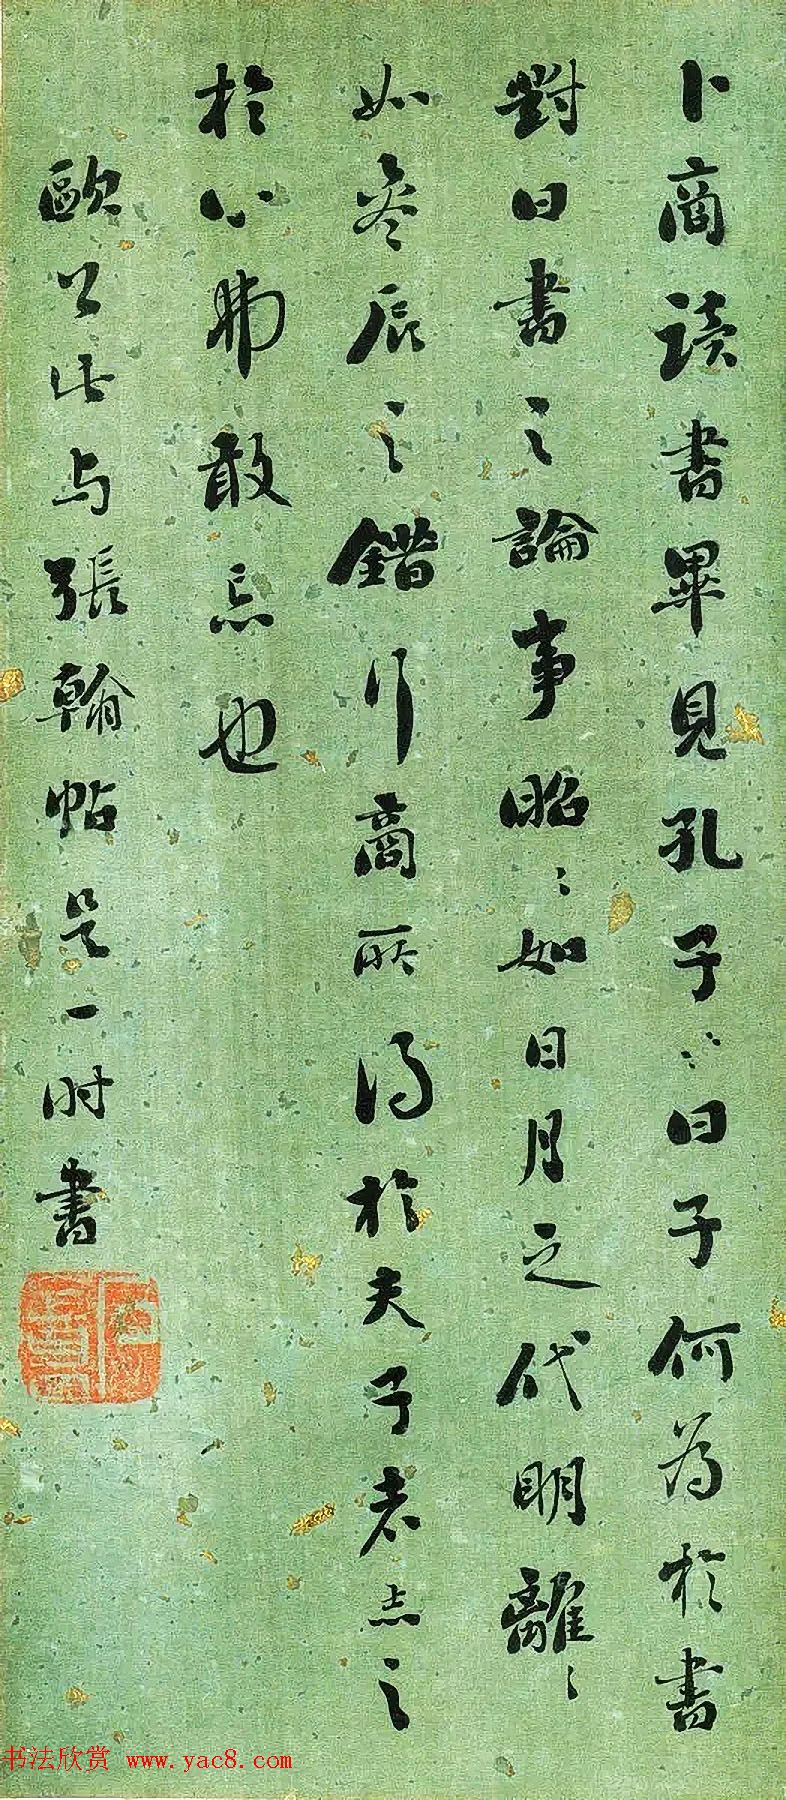 卜商讀書畢見孔子〻曰子何為於書
對曰書之論事昭〻如日月之代明離〻
如參辰之錯行商所得於夫子者志之
於心弗敢忘也
歐公此与張翰帖是一时書
书法欣赏 www.yac8.com